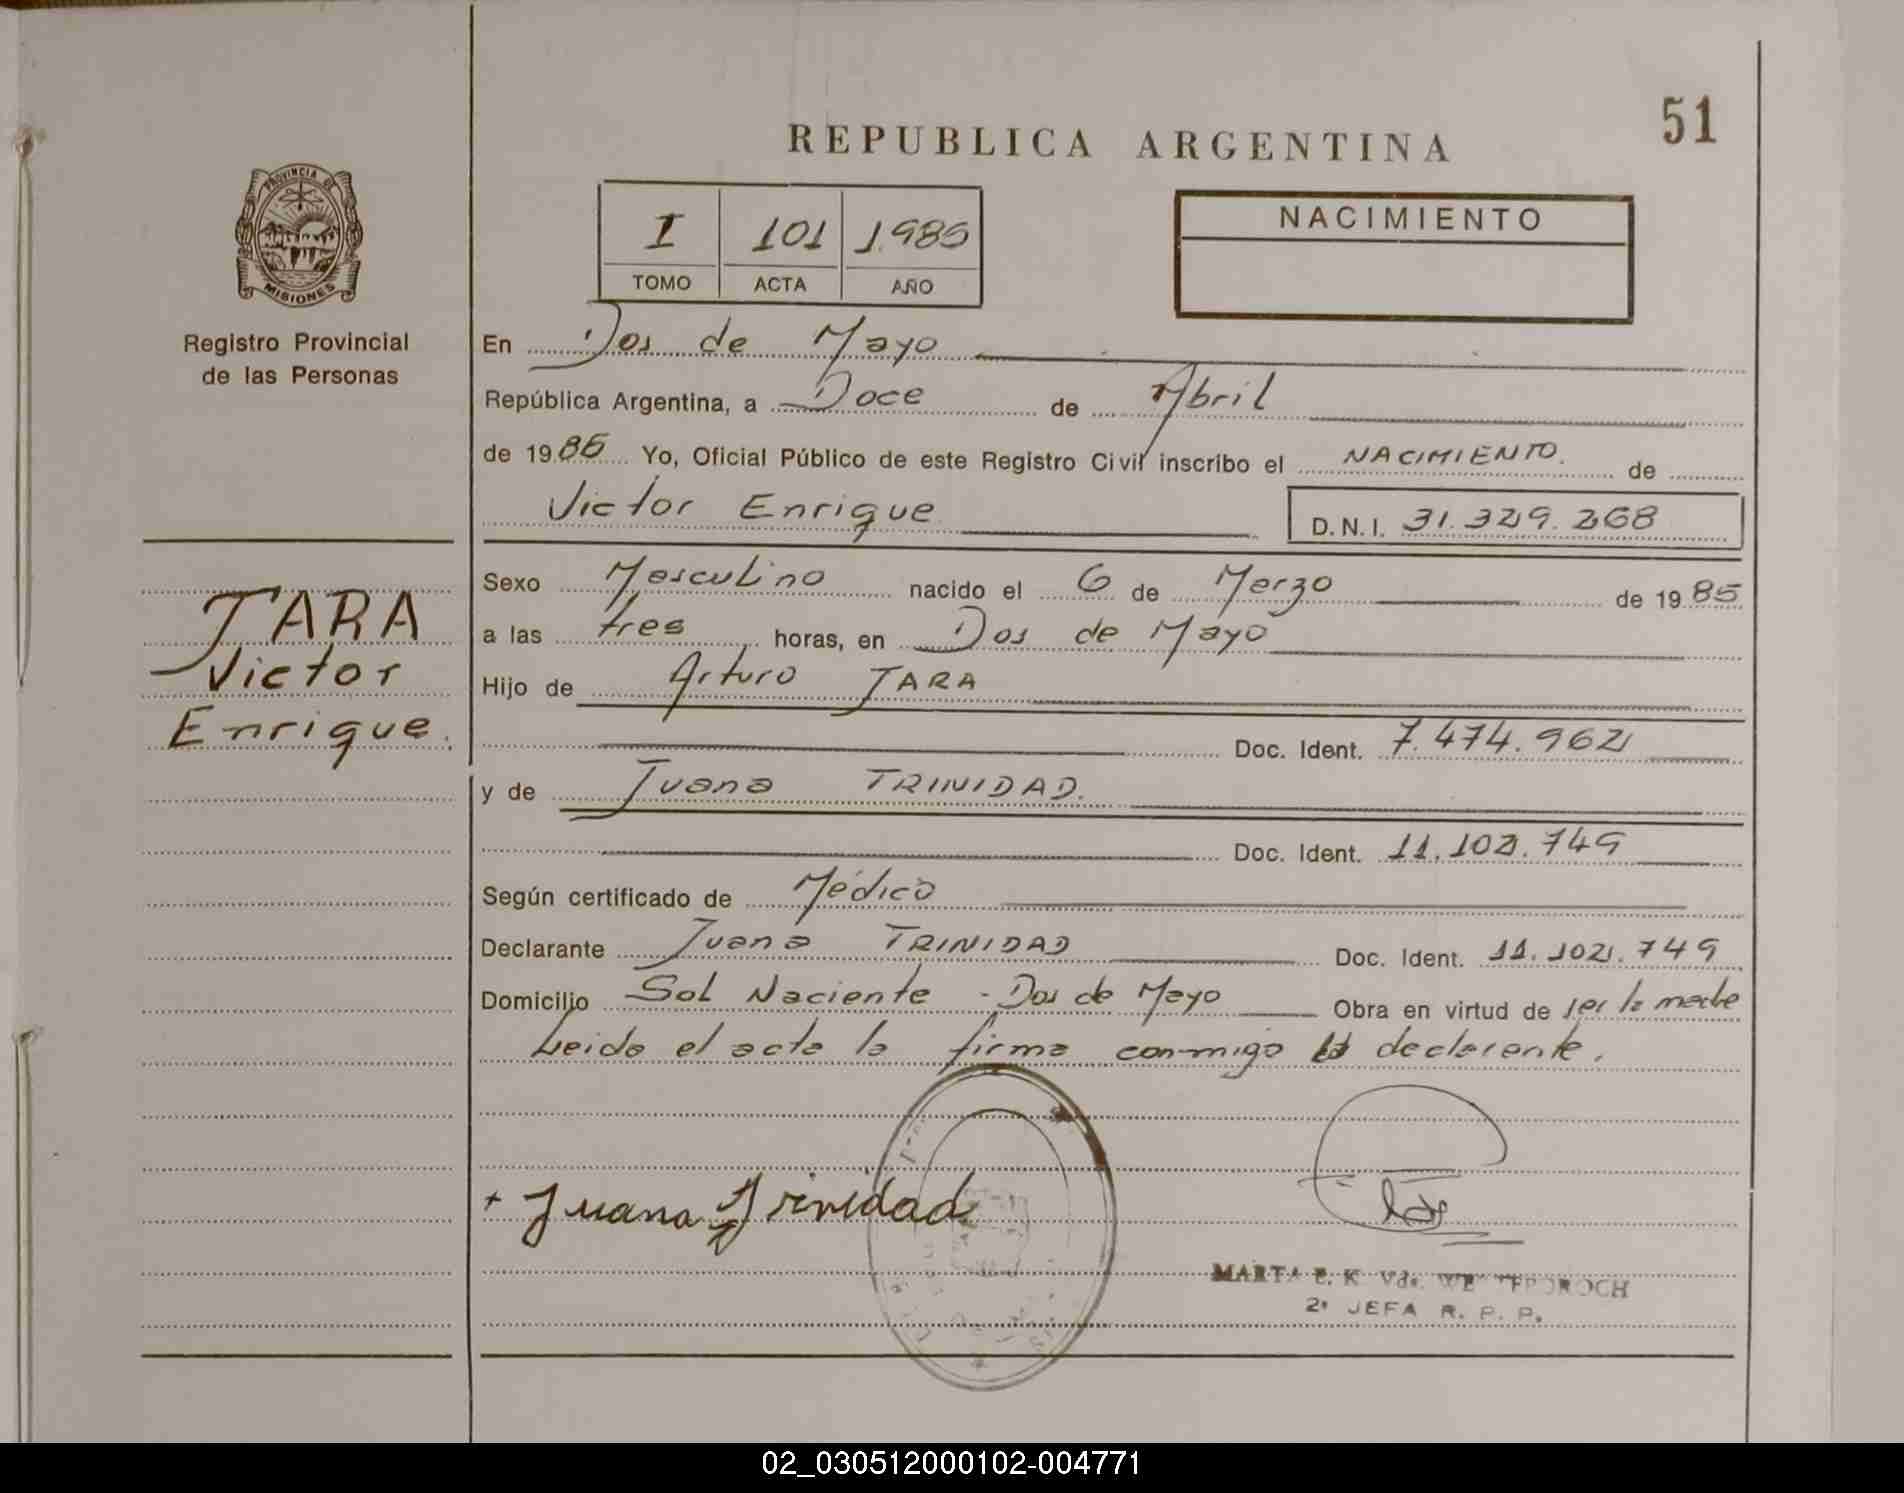 51
REPUBLICA ARGENTINA
PROVINCIA DE
MISIONES
Registro Provincial
de las Personas
I 101 1.985
TOMO ACTA AÑO
NACIMIENTO
En Dos de Mayo
República Argentina, a Doce de Abril
de 1985 Yo, Oficial Público de este Registro Civil inscribo el NACIMIENTO. de
Victor Enrique D.N.I. 31.329.268
JARA
Victor
Enrique.
Sexo Masculino nacido el 6 de Marzo de 1985
a las tres horas, en Dos de Mayo
Hijo de Arturo JARA
Doc. Ident. 7.474.962
y de Juana TRINIDAD.
Doc. Ident. 11.102.749
Según certificado de Médico
Declarante Juana TRINIDAD Doc. Ident. 11.102.749
Domicilio Sol Naciente - Dos de Mayo Obra en virtud de ser la madre
Leida el acta la firma conmigo la declarante.
+ Juana Trinidad
MARTA E. K. Vda.
2ª JEFA R. P. P.
02_030512000102-004771